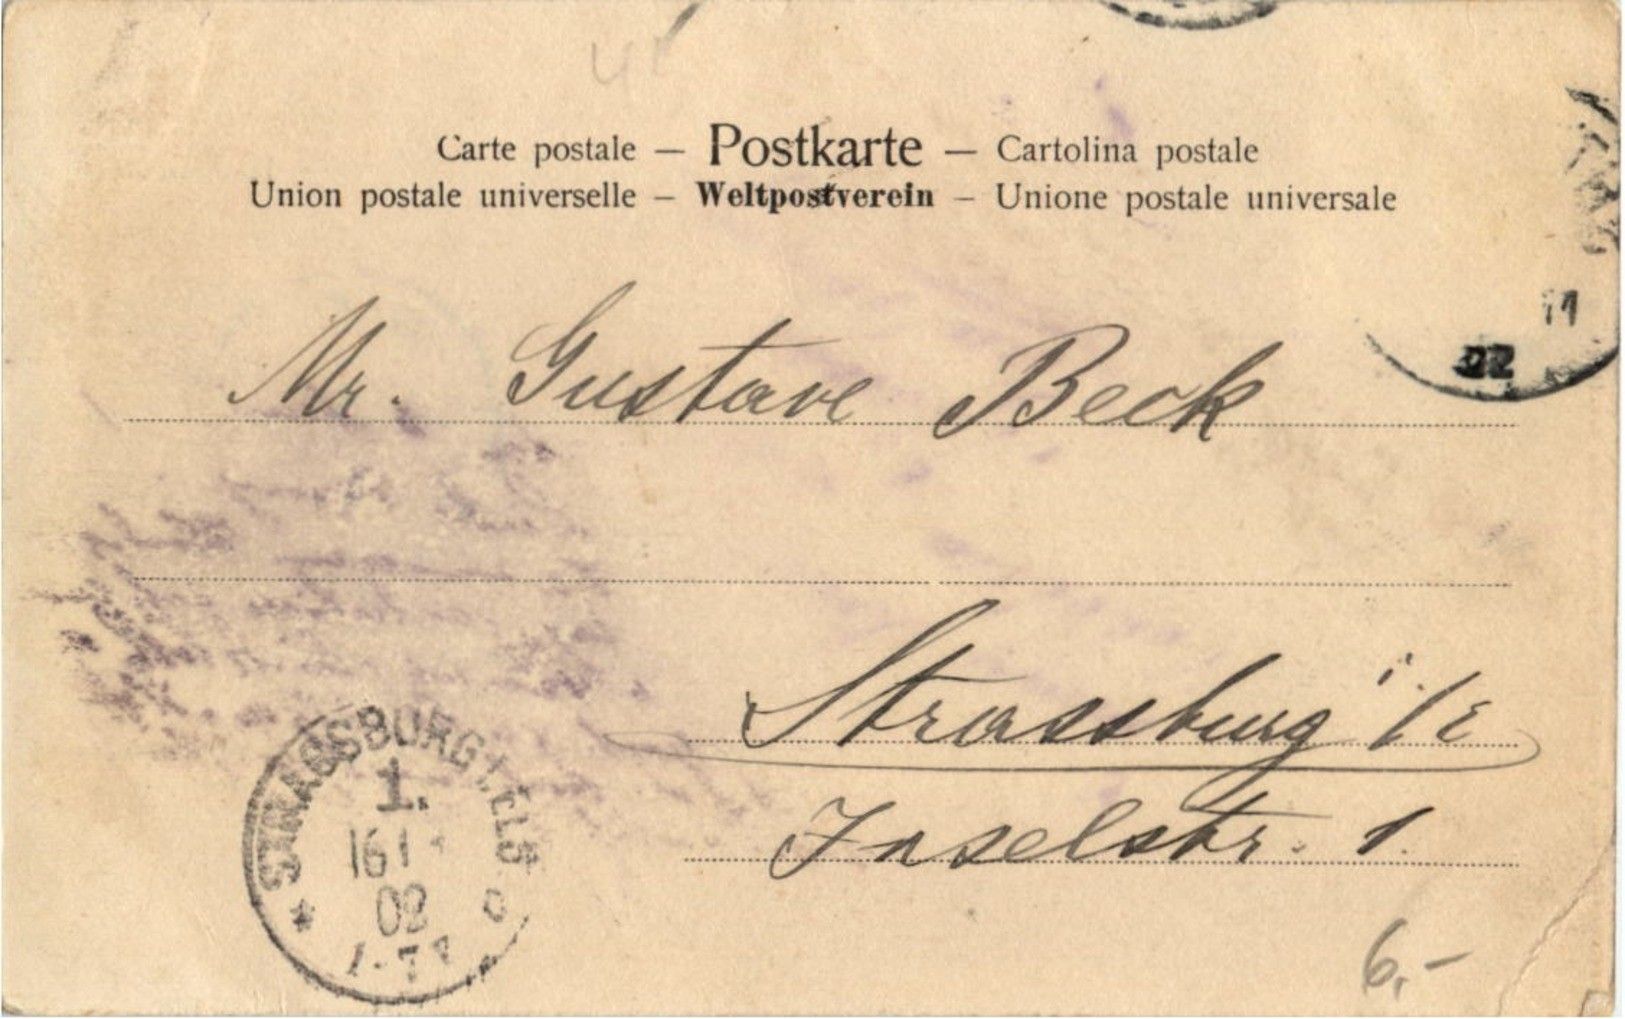 Carte postale — Postkarte — Cartolina postale
Union postale universelle — Weltpostverein — Unione postale universale
11
02
Mr. Gustave Beck
Strassburg i./E
Inselstr. 1.
STRASSBURG I. ELS
1.
16
02
6,-